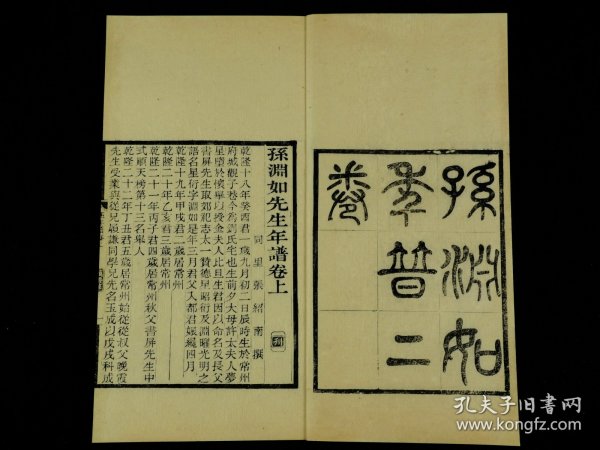 孫淵如
年普二
卷
孫淵如先生年譜卷上
同里張紹南撰
乾隆十八年癸酉君一歲九月初二日辰時生於常州
府城觀子巷今為劉氏宅也生前夕大母許太夫人夢
星墮於懷舉以授金夫人比旦生君因以命名及長父
書屏先生
語名星衍字淵如是年三月君父入都君
乾隆十九年甲戌君二歲居常州
乾隆二十年乙亥君三歲居常州
乾隆二十一年丙子君四歲居常州秋父書屏先生中
式順天榜第十三名舉人
乾隆二十二年丁丑君五歲居常州始從從叔父晚霞
先生受業與從兄穎謙同學兄先名玉成以戊戌科成
孔夫子旧书网
www.kongfz.com